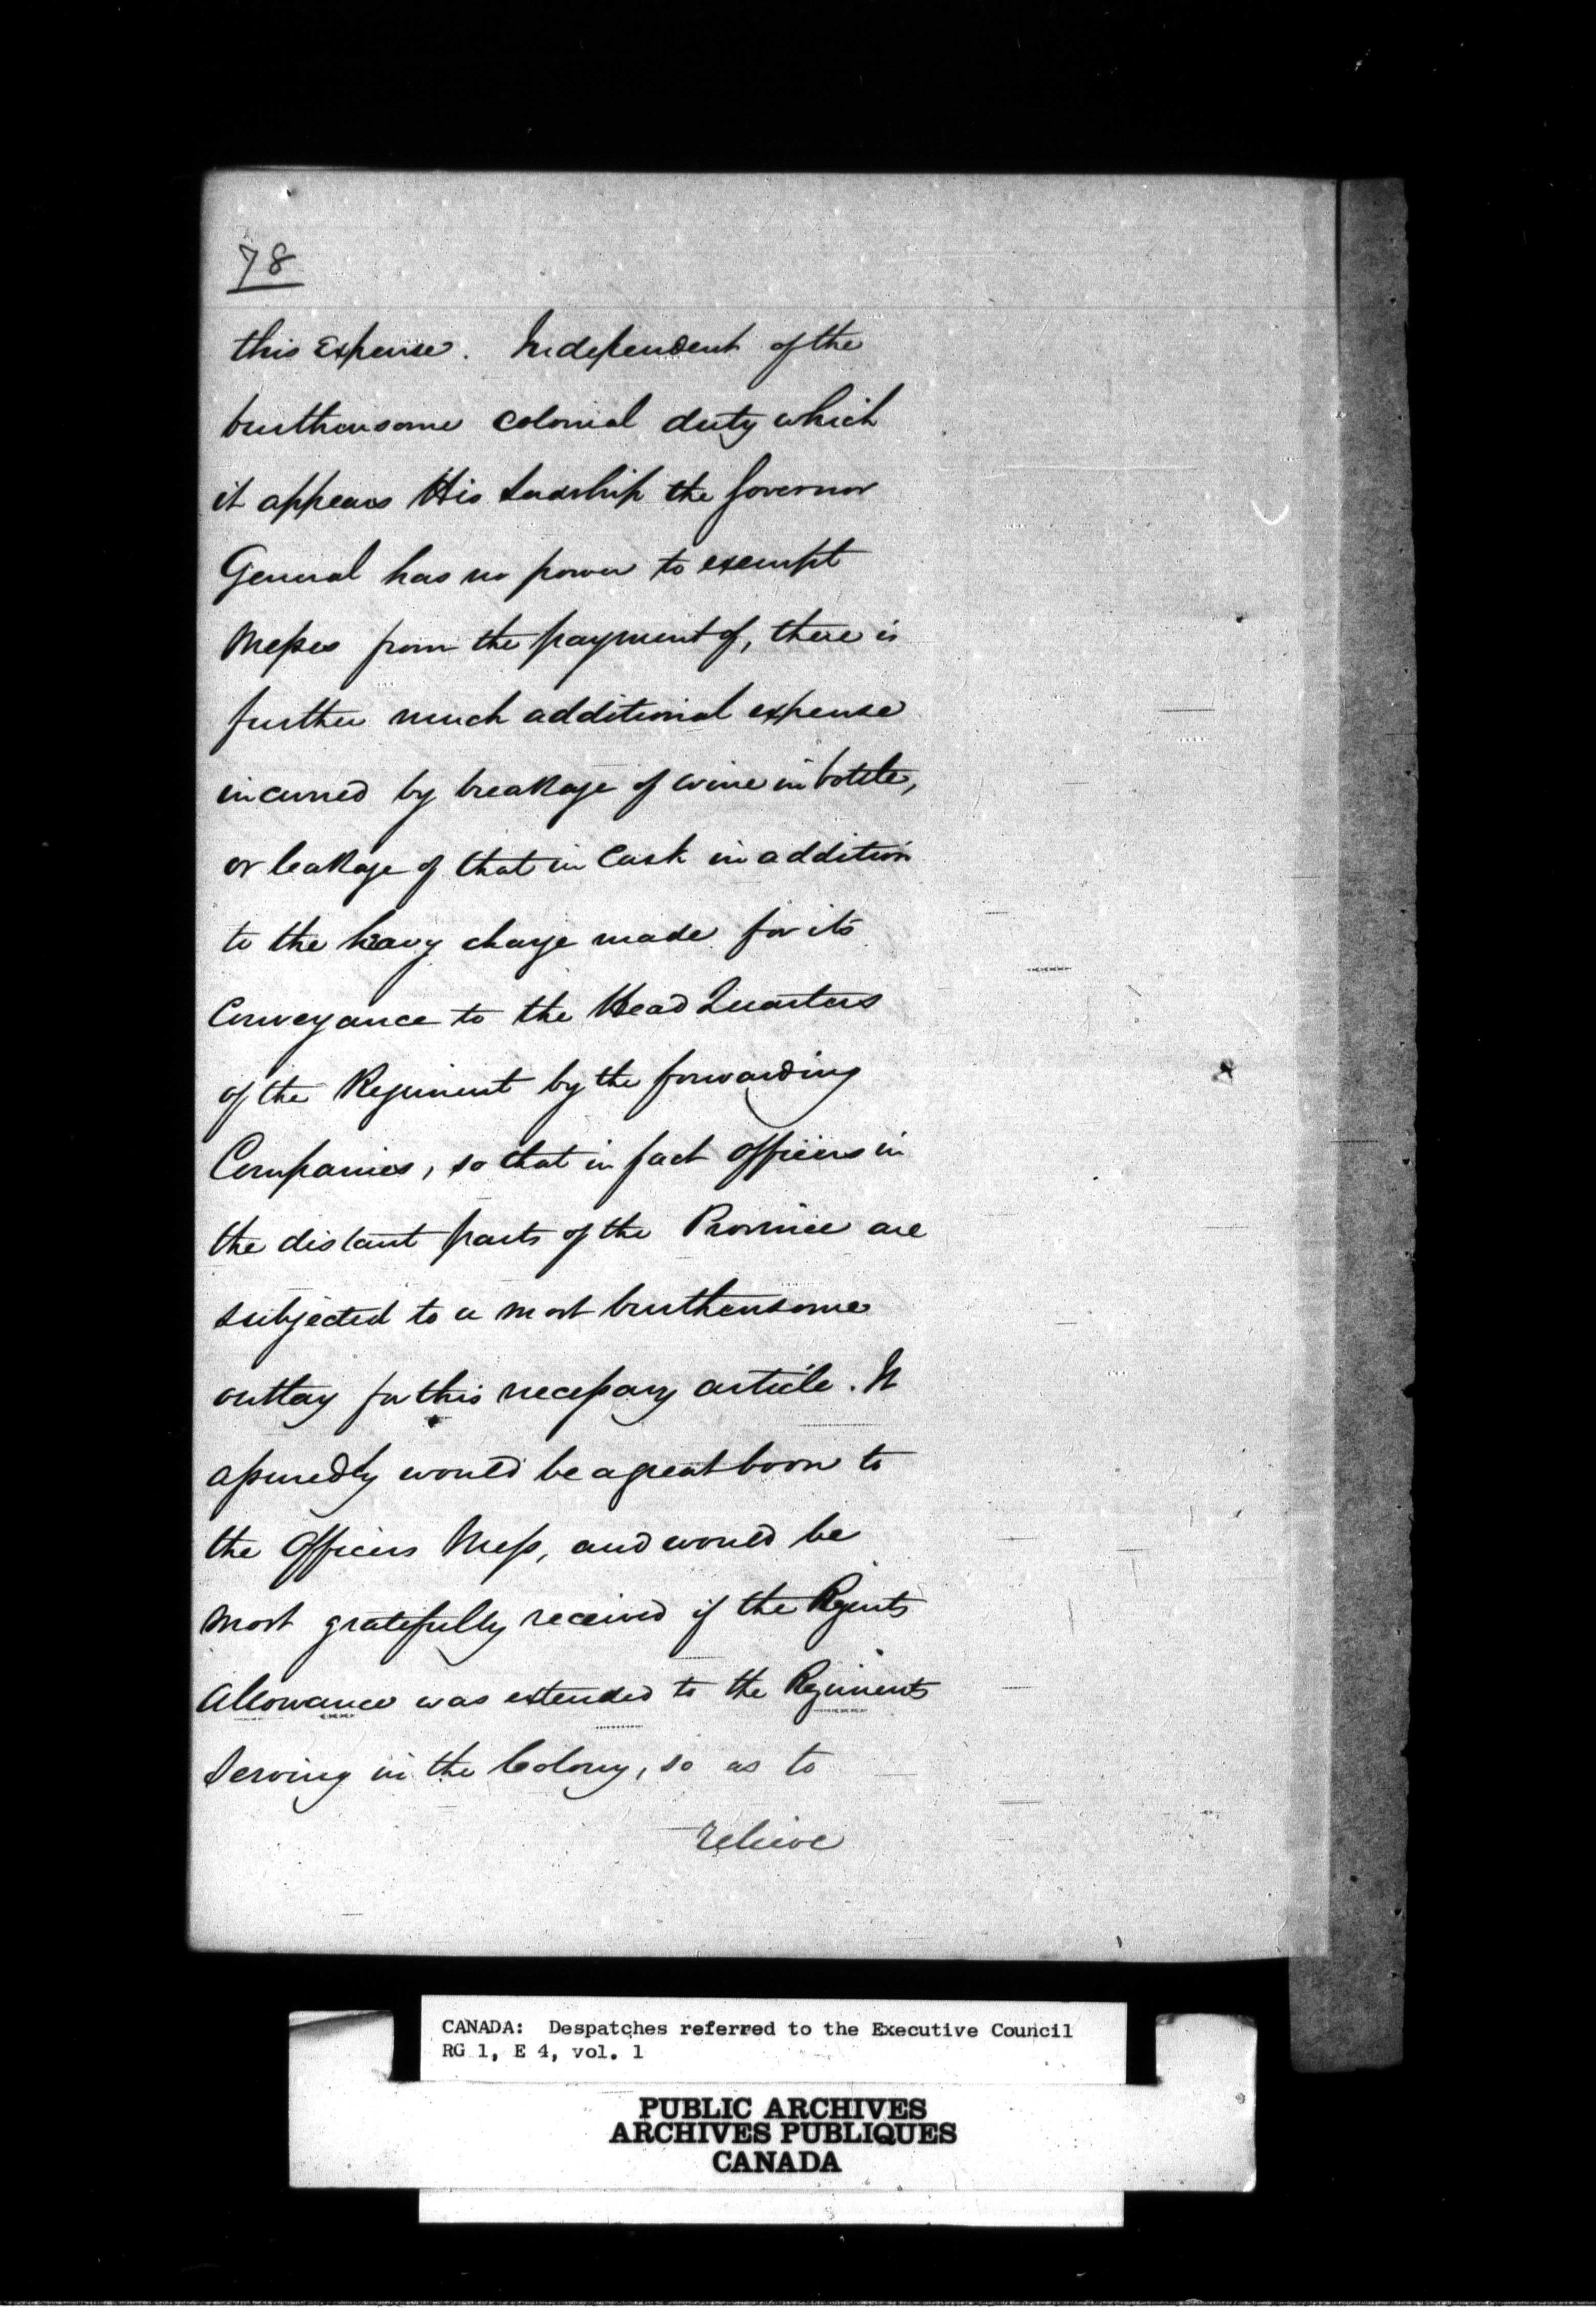 78
this Expense. Independent of the
burthensome colonial duty which
it appears His Lordship the Governor
General has no power to exempt
Messes from the payment of, there is
further much additional expense
incurred by breakage of wine in bottle,
or leakage of that in Cask in addition
to the heavy charge made for its
Conveyance to the Head Quarters
of the Regiment by the forwarding
Companies, so that in fact Officers in
the distant parts of the Province are
subjected to a most burthensome
outlay for this necessary article. It
assuredly would be a great boon to
the Officers Mess, and would be
most gratefully received if the Regents
Allowance was extended to the Regiments
Serving in the Colony, so as to
relieve
CANADA: Despatches referred to the Executive Council
RG 1, E 4, vol. 1
PUBLIC ARCHIVES
ARCHIVES PUBLIQUES
CANADA